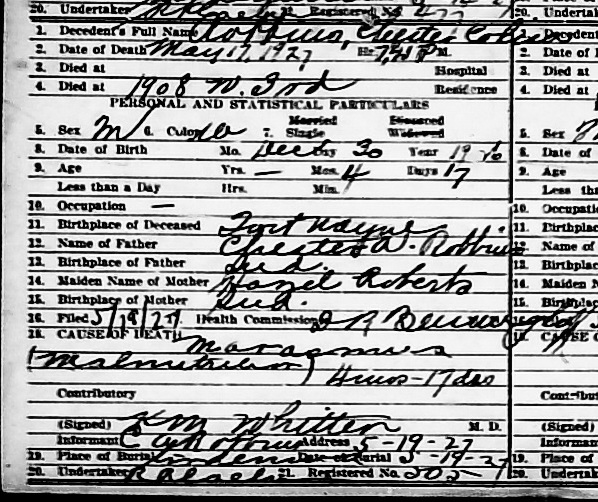 20. Undertaker 21. Registered No. 477 20. Undertak
1. Decedent's Full Name Robbins, Chester Decedent
2. Date of Death May 17, 1927 Hr. M. 2. Date of D
3. Died at Hospital 3. Died at
4. Died at 1908 W. 3rd Residence 4. Died at
PERSONAL AND STATISTICAL PARTICULARS
Married Divorced
5. Sex M 6. Color W 7. Single Widowed 5. Sex
8. Date of Birth Mo. Dec Day 30 Year 1926 8. Date of
9. Age Yrs. — Mos. 4 Days 17 9. Age
Less than a Day Hrs. Min. Less th
10. Occupation — 10. Occupati
11. Birthplace of Deceased Fort Wayne 11. Birthplac
12. Name of Father Chester A. Robbins 12. Name of
13. Birthplace of Father Ind. 13. Birthplac
14. Maiden Name of Mother Hazel Roberts 14. Maiden N
15. Birthplace of Mother Ind. 15. Birthplac
16. Filed 5/19/27 Health Commissioner
18. CAUSE OF DEATH Marasmus CAUSE O
(Malnutrition) 4 mos-17 das
Contributory Contribut
(Signed) K M Whitten M. D. (Signed)
Informant C A Robbins Address 5-19-27 Informan
19. Place of Burial Lindenwood Date of Burial 5-19-27 19. Place of
20. Undertaker 21. Registered No. 505 20. Undertak